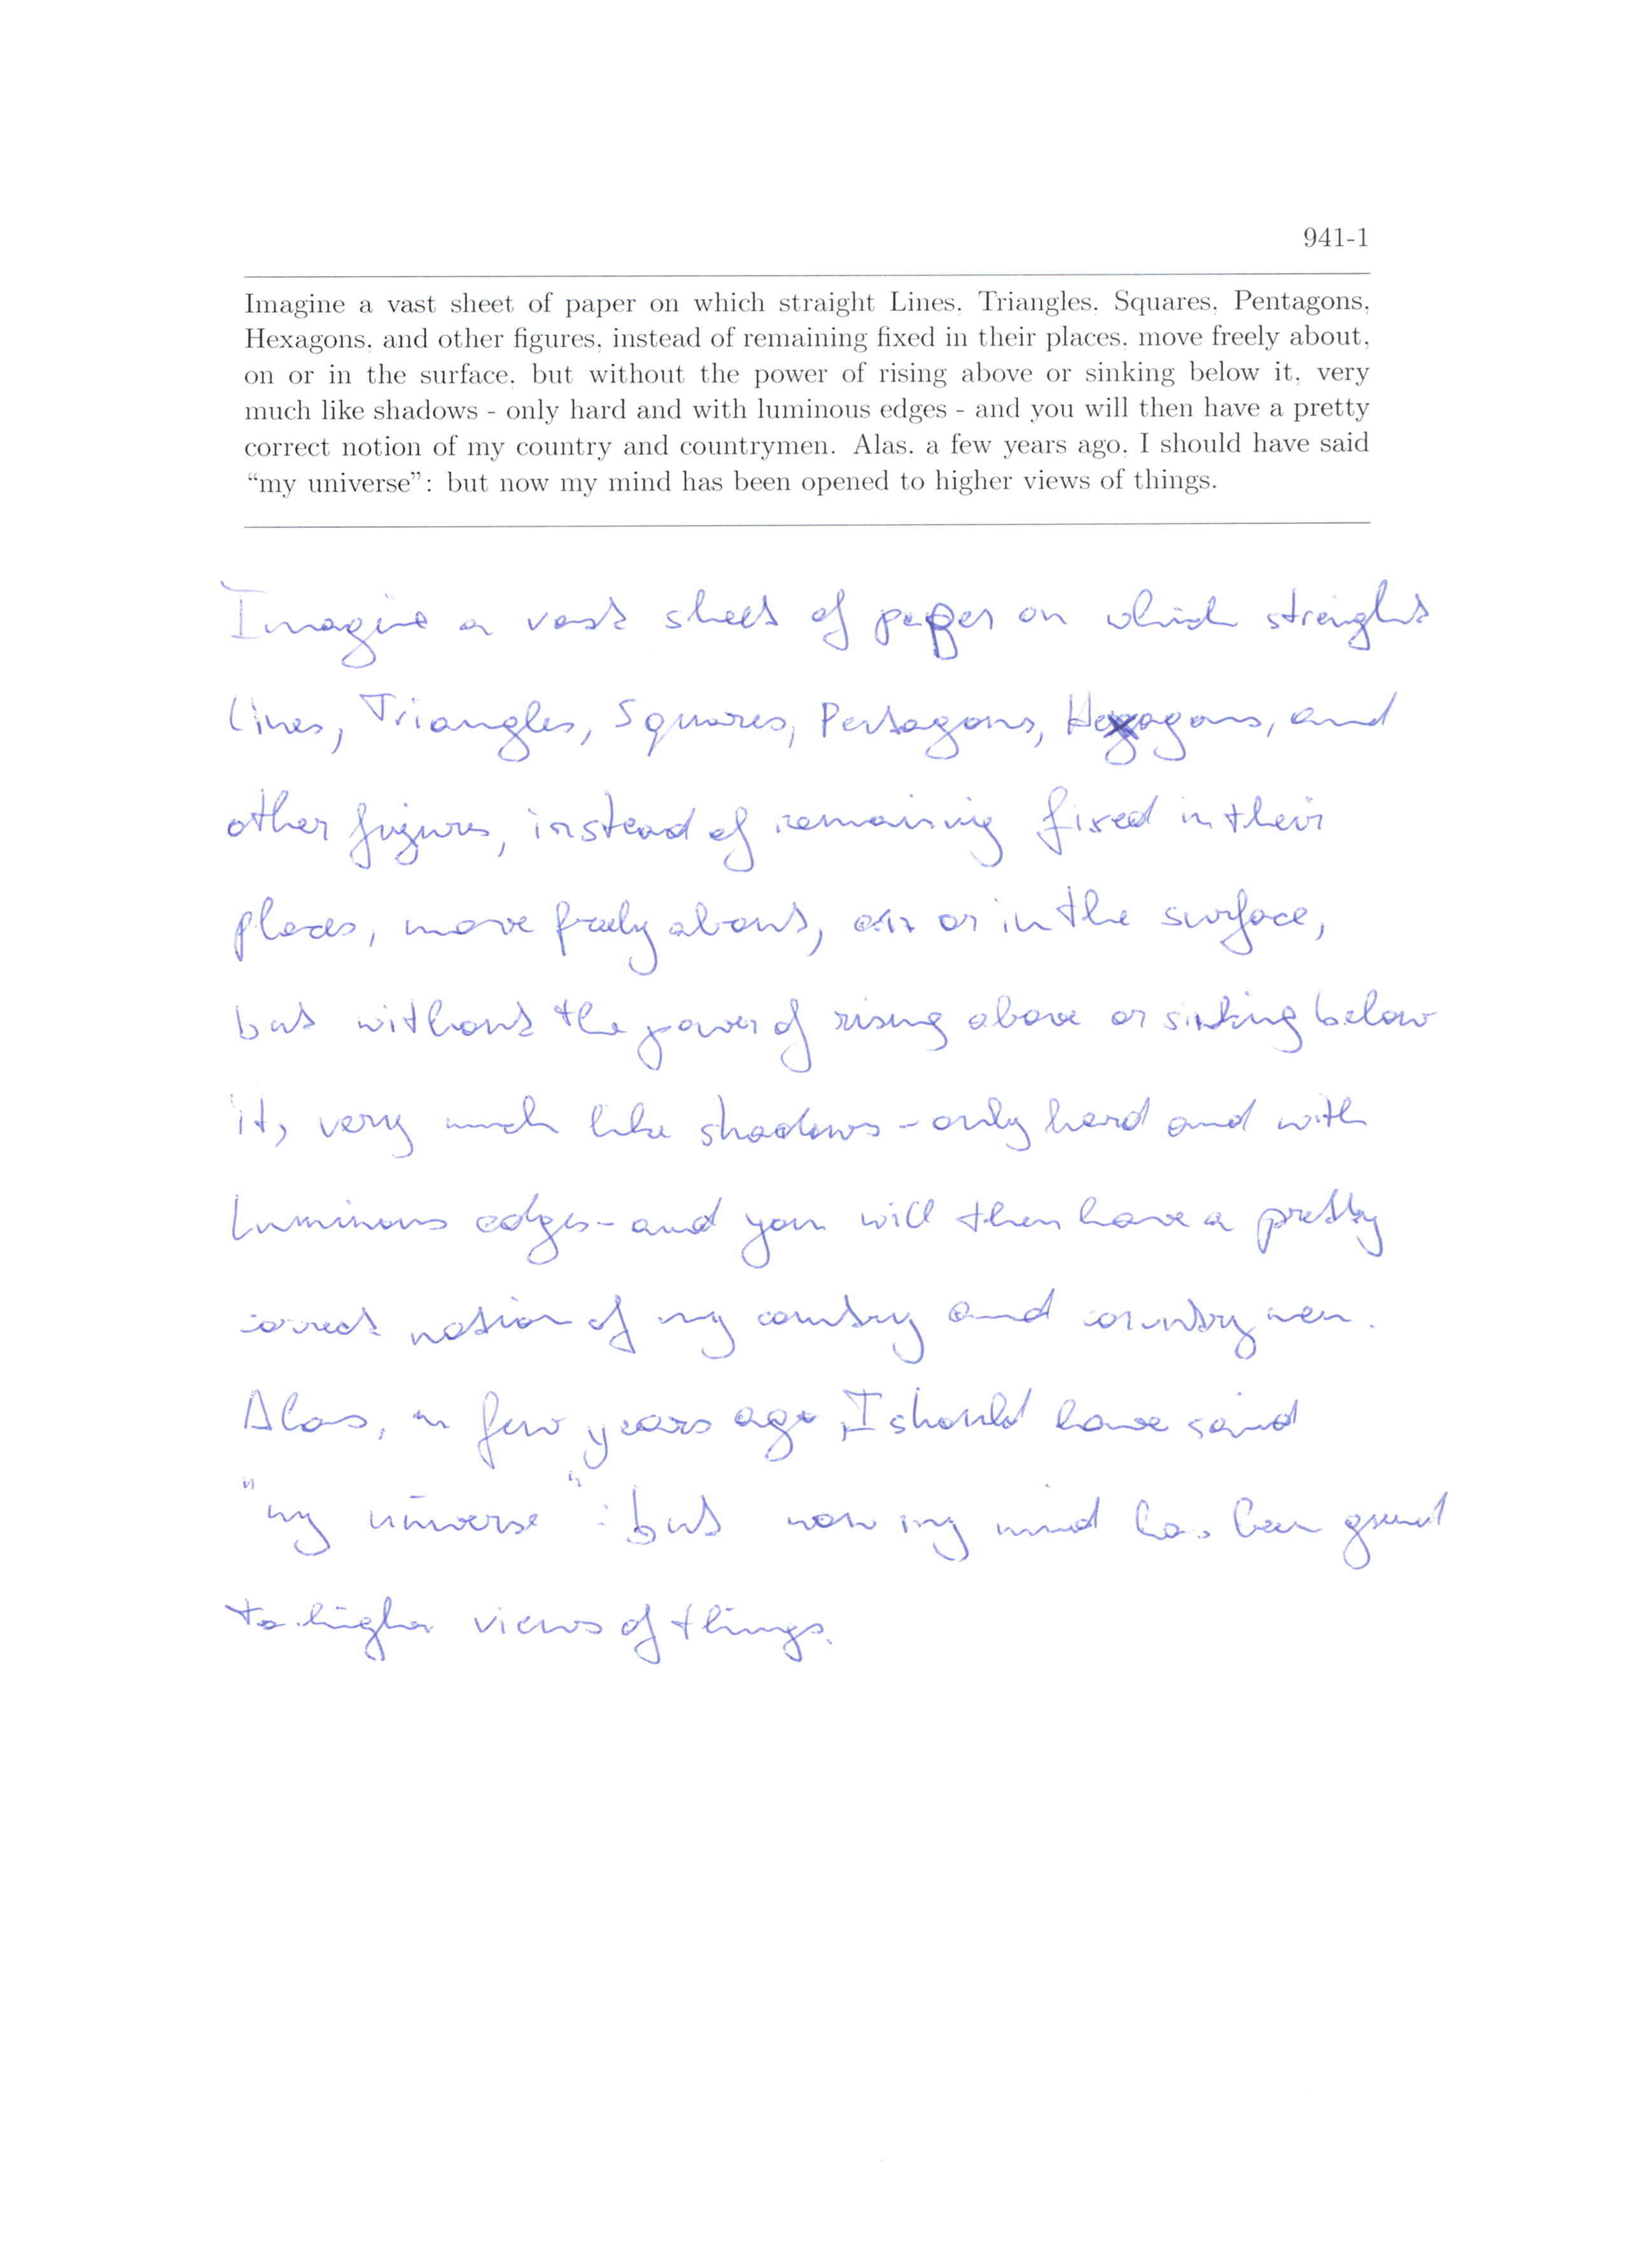 941-1
Imagine a vast sheet of paper on which straight Lines, Triangles, Squares, Pentagons,
Hexagons, and other figures, instead of remaining fixed in their places, move freely about,
on or in the surface, but without the power of rising above or sinking below it, very
much like shadows - only hard and with luminous edges - and you will then have a pretty
correct notion of my country and countrymen. Alas, a few years ago, I should have said
“my universe”: but now my mind has been opened to higher views of things.
Imagine a vast sheet of paper on which straight
Lines, Triangles, Squares, Pentagons, Hexagons, and
other figures, instead of remaining fixed in their
places, move freely about, on or in the surface,
but without the power of rising above or sinking below
it, very much like shadows - only hard and with
luminous edges - and you will then have a pretty
correct notion of my country and countrymen.
Alas, a few years ago, I should have said
"my universe": but now my mind has been opened
to higher views of things.